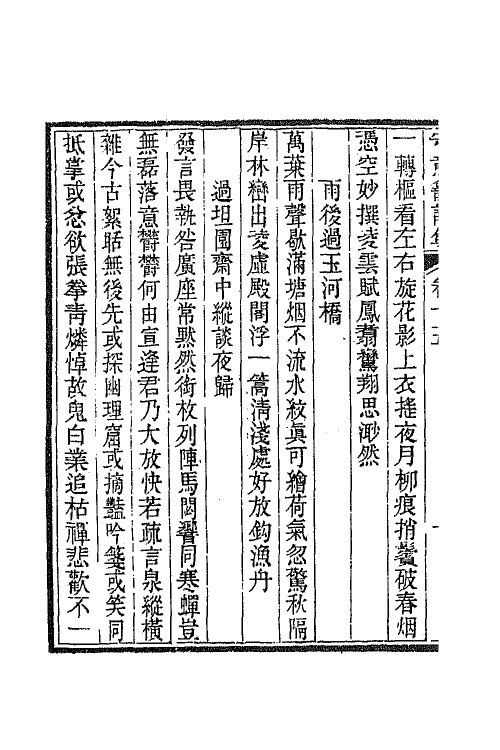 一轉樞看左右旋花影上衣搖夜月柳痕捎鬢破春烟
憑空妙撰凌雲賦鳳翥鸞翔思渺然
雨後過玉河橋
萬葉雨聲歇滿塘烟不流水紋真可繪荷氣忽驚秋隔
岸林巒出凌虛殿閣浮一篙淸淺處好放鈎漁舟
過坦園齋中縱談夜歸
發言畏執咎廣座常默然銜枚列陣馬閟響同寒蟬豈
無磊落意鬱鬱何由宣逢君乃大放快若疏言泉縱橫
雜今古絮聒無後先或探幽理窟或摘豔吟箋或笑同
抵掌或忿欲張拳靑燐悼故鬼白業追枯禪悲歡不一